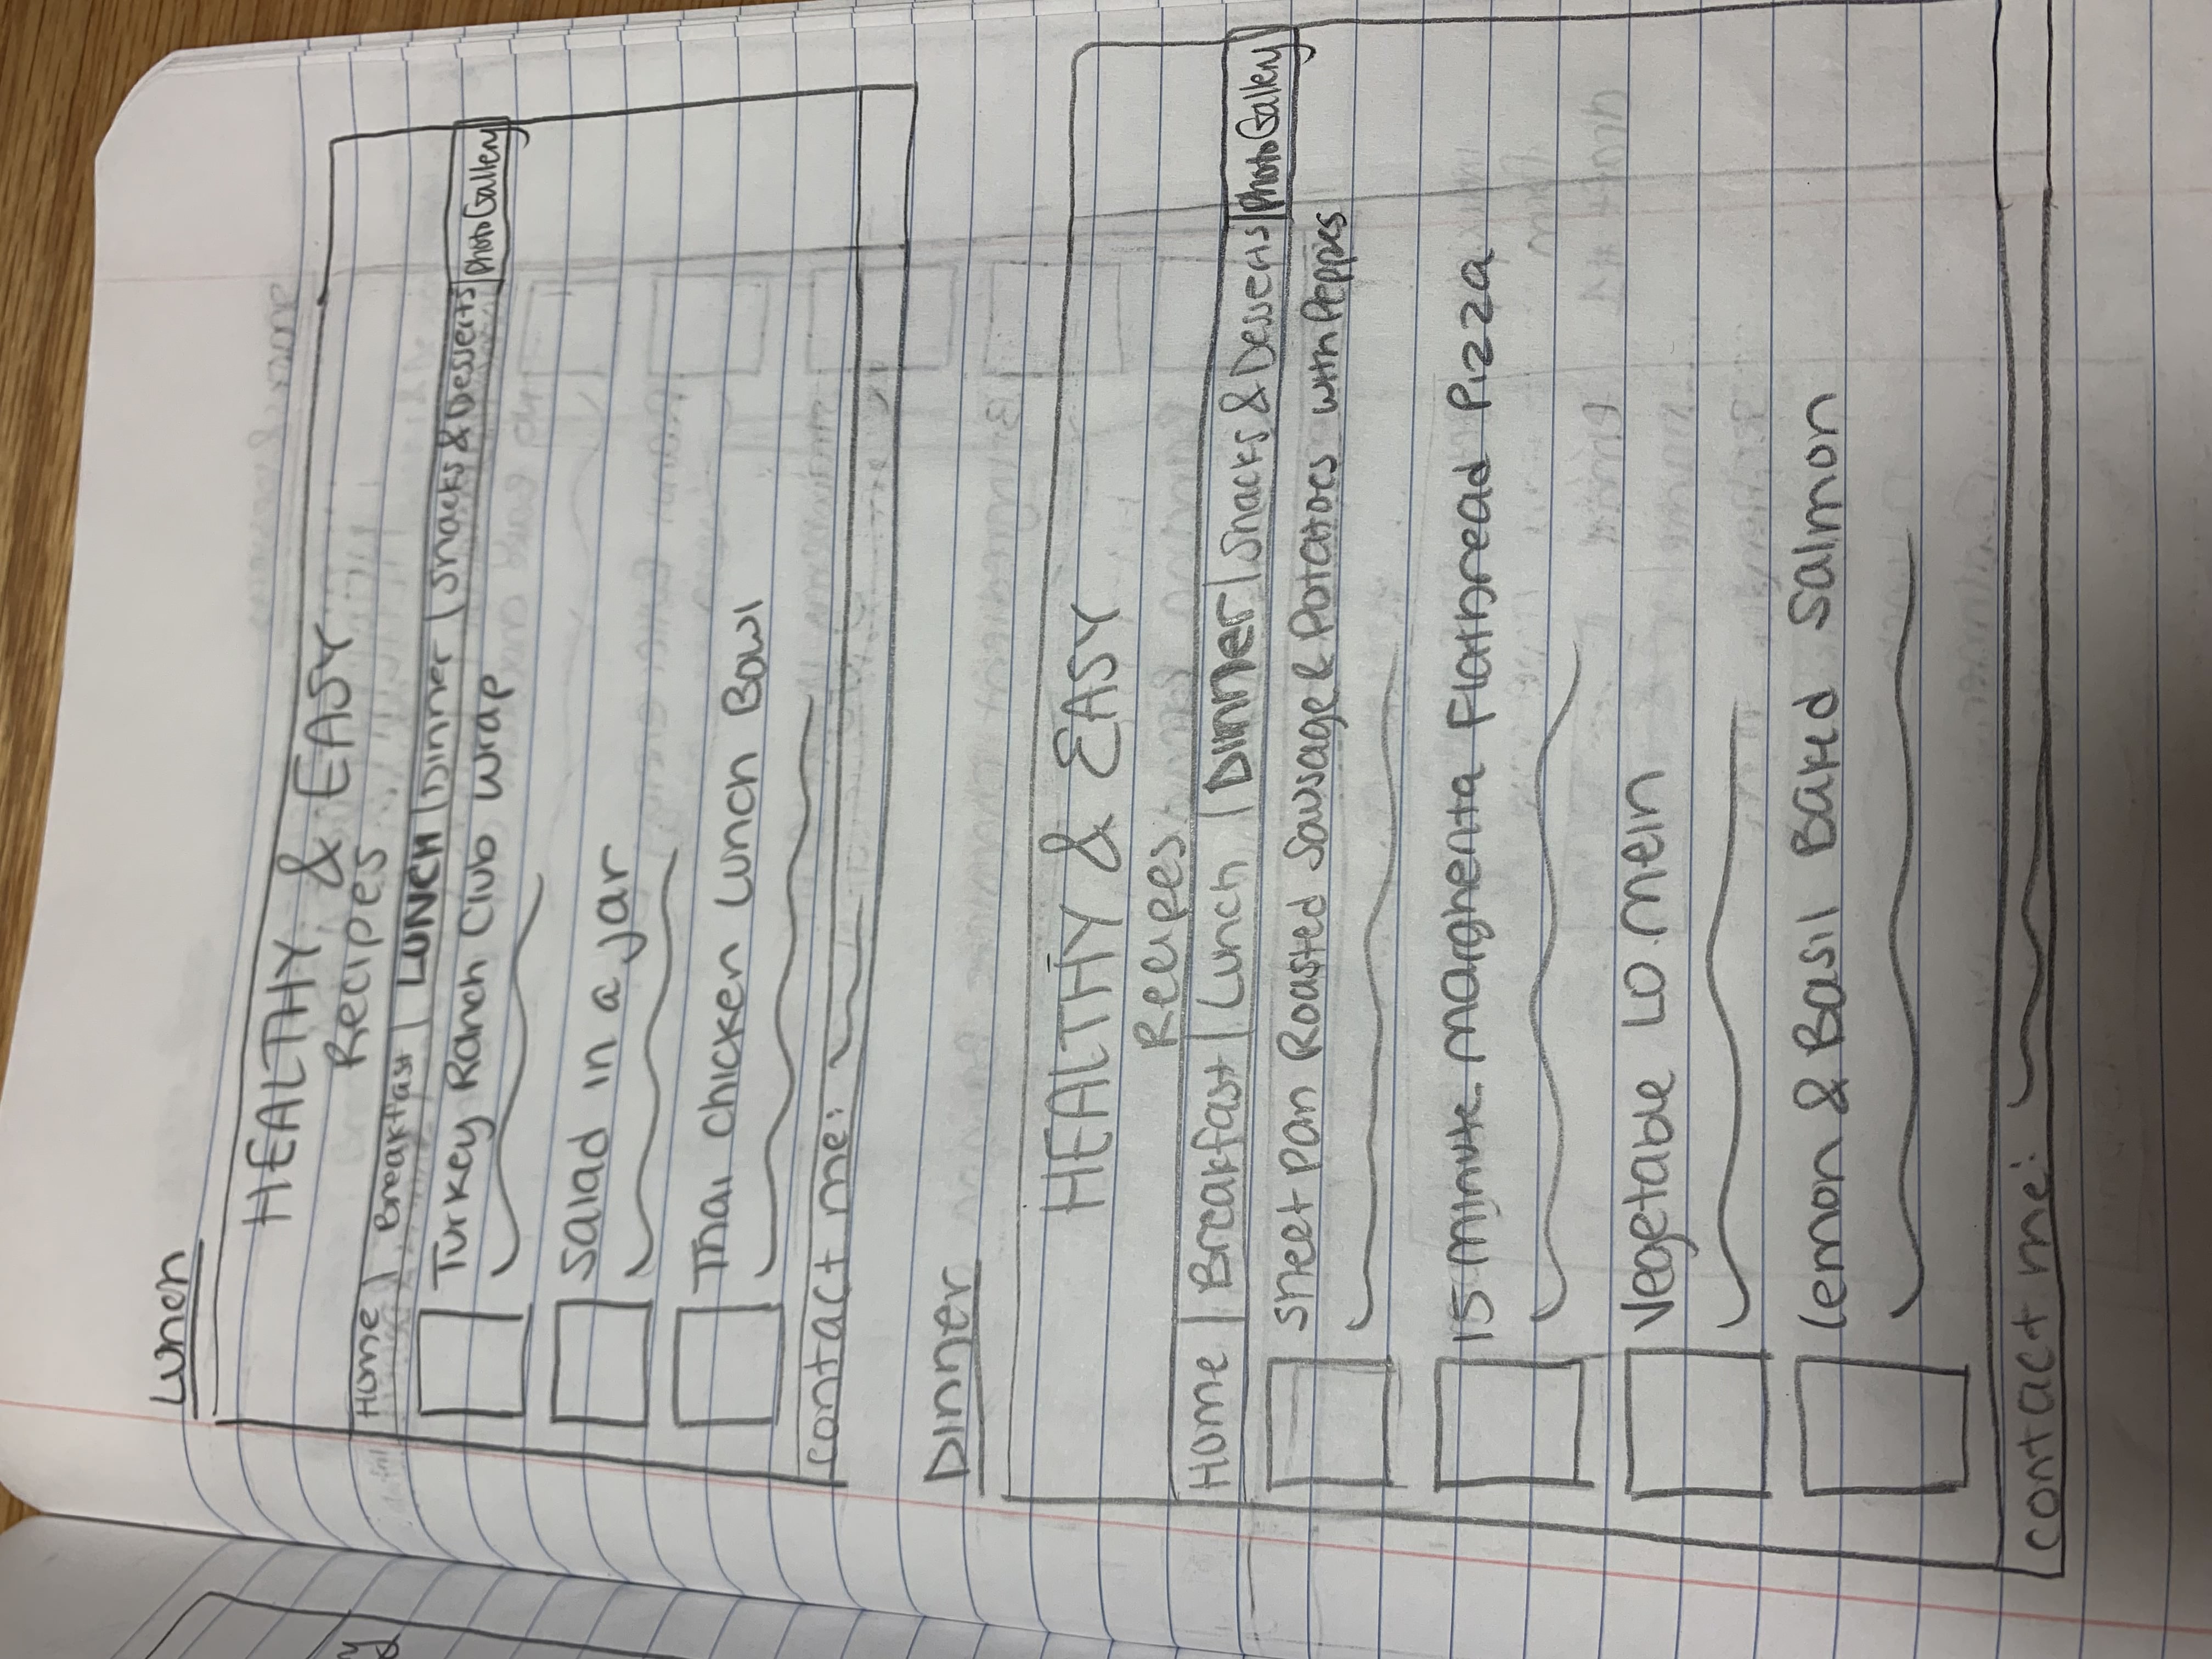 Lunch
HEALTHY & EASY
Recipes
Home | Breakfast | LUNCH | Dinner | Snacks & Desserts | Photo Gallery
Turkey Ranch Club Wrap
Salad in a jar
Thai Chicken Lunch Bowl
contact me:
Dinner
HEALTHY & EASY
Recipes
Home | Breakfast | Lunch | Dinner | Snacks & Desserts | Photo Gallery
Sheet Pan Roasted Sausage & Potatoes with
15 Minute Flatbread Pizza
Vegetable Lo Mein
Lemon & Basil Baked Salmon
contact me: